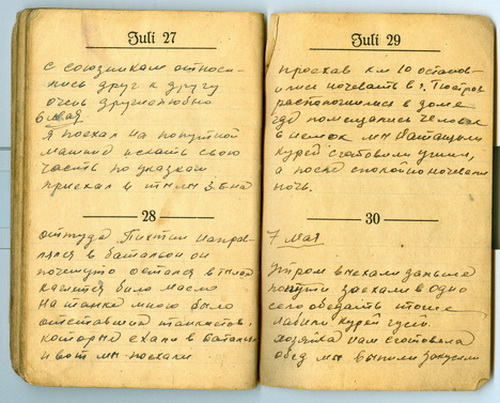 Juli 27
с союзникам относи-
лись друг к другу
очень дружелюбно
6 мая
Я поехал на попутной
машине искать свою
часть по указкам
приехал в тылы 3 б-на
28
оттуда Пихтин направ-
лялся в батальон он
почемуто остался в тылах
кажется было масло
На танке много было
отставших танкистов,
которые ехали в батальон
и вот мы поехали
Juli 29
проехав км 10 останов-
ились ночевать в г.
расположились в доме
где помещались человек
немок мы натащили
курей сготовили ужин,
а после спокойно ночевали
ночь.
30
7 мая
Утром выехали дальше
попути заехали в одно
село обедать тоже
набили курей гусей
хозяйка нам сготовила
обед мы выпили закусили